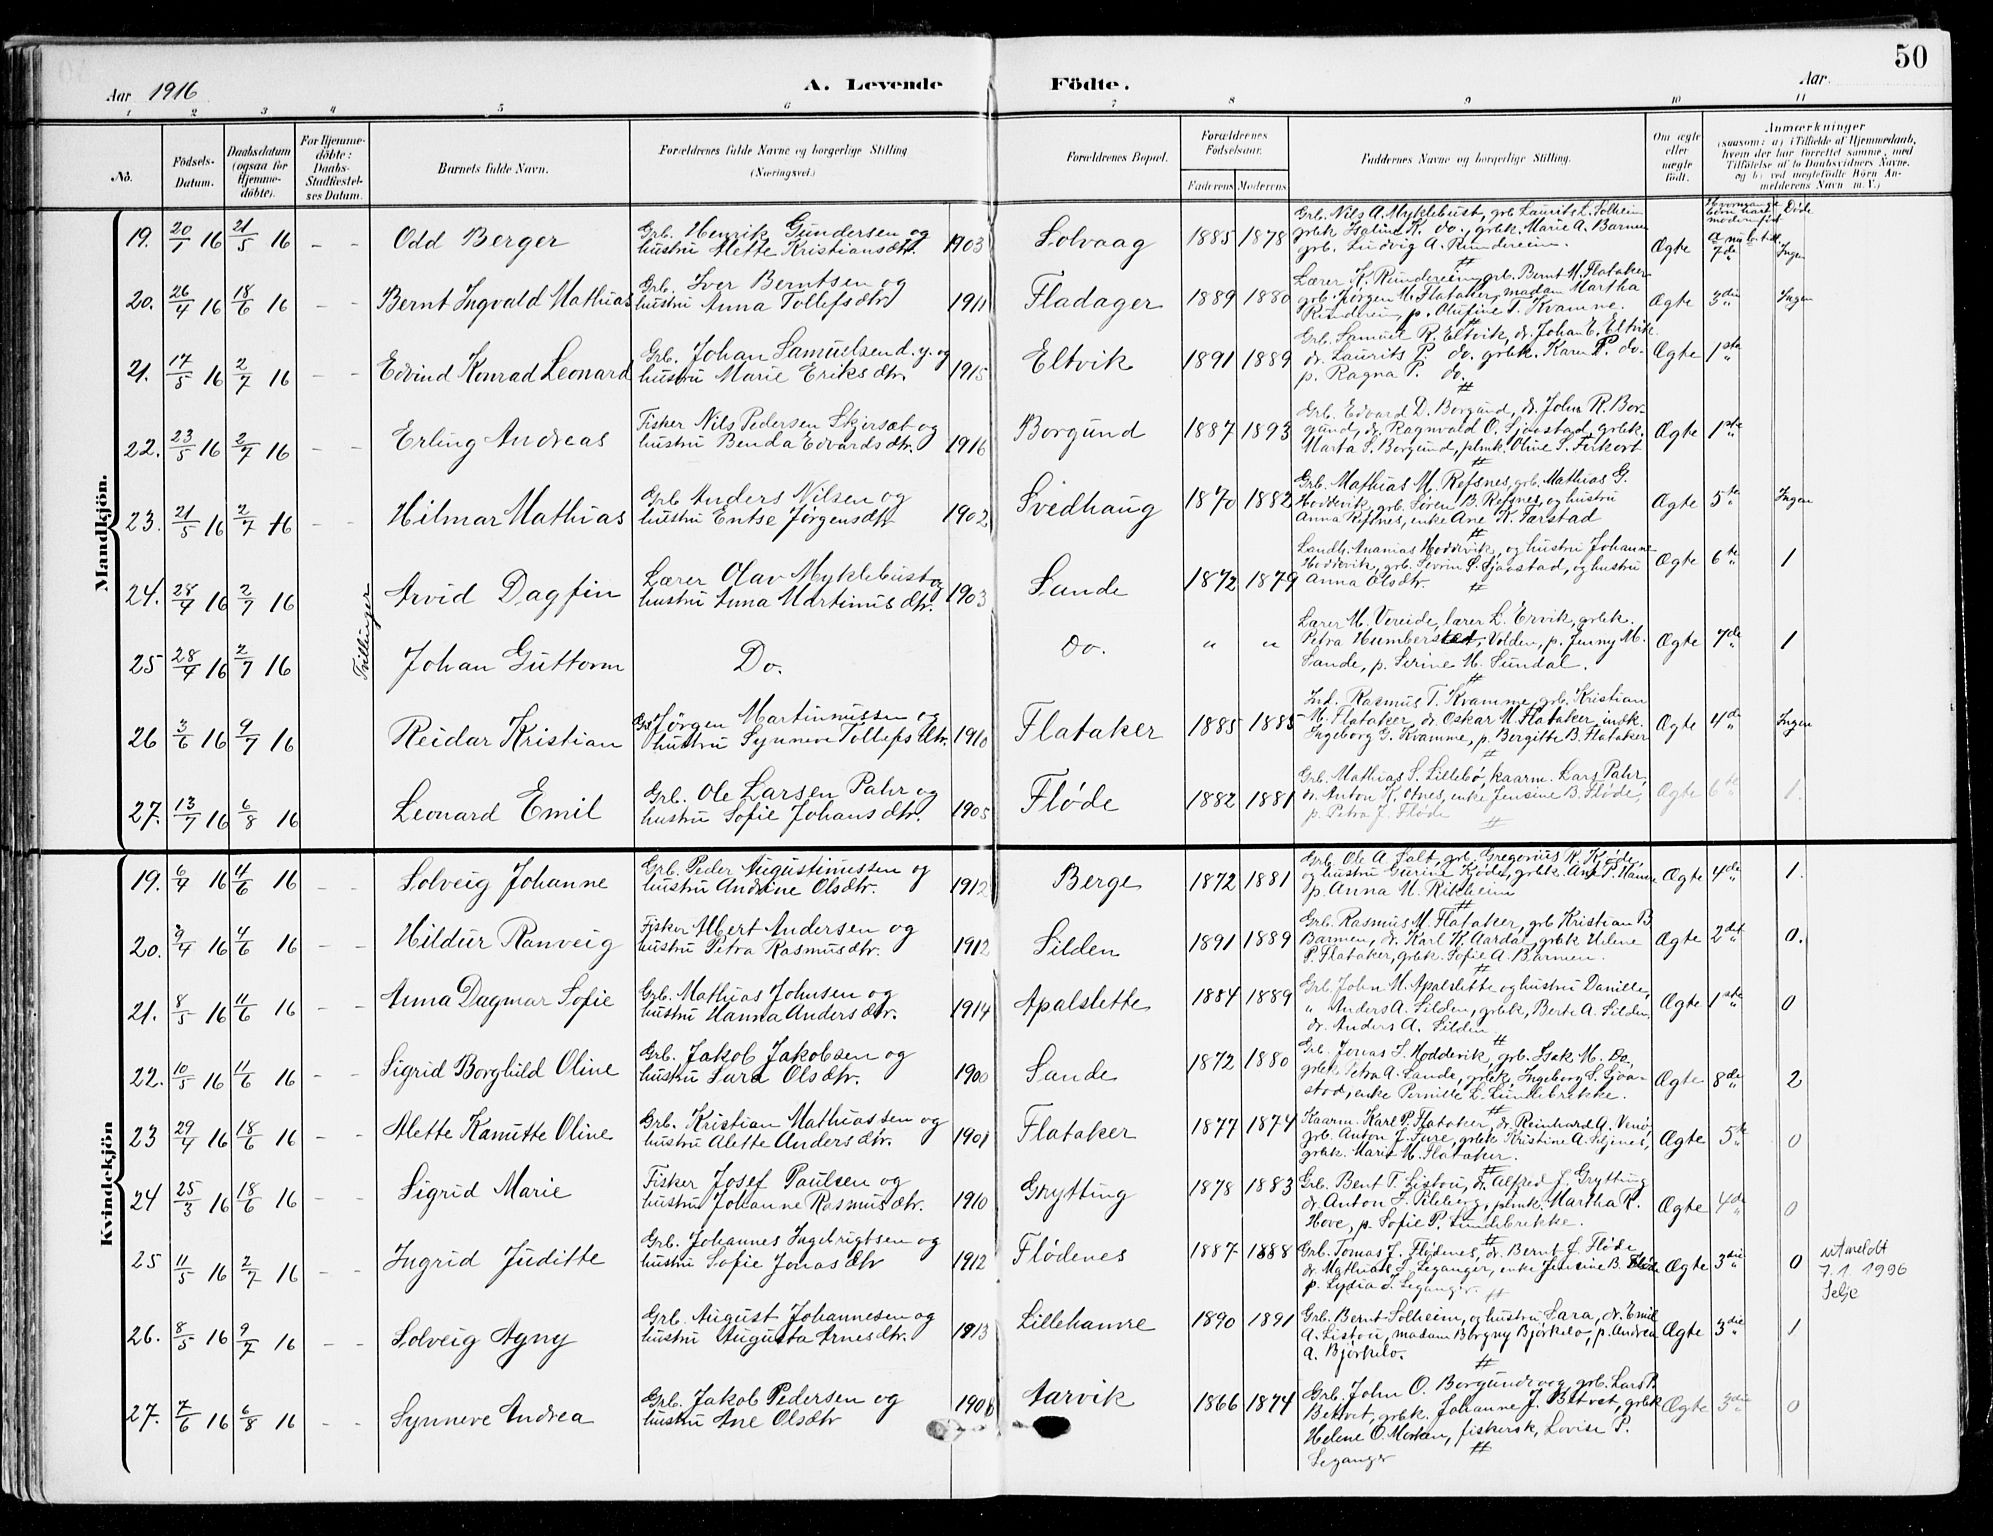 50
Aar 1916
A. Levende Födte.
Aar
1 2 3 4 5 6 7 8 9 10 11
No.
Födsels-Datum.
Daabsdatum (ogsaa for Hjemmedöbte).
For Hjemmedöbte: Daabs-Stadfæstelses Datum.
Barnets fulde Navn.
Forældrenes fulde Navne og borgerlige Stilling (Næringsvei.)
Forældrenes Bopæl.
Forældrenes Födselsaar.
Faderens Moderens
Faddernes Navne og borgerlige Stilling.
Om ægte eller uægte födt.
Anmærkninger
(saasom: a) i Tilfælde af Hjemmedaab, hvem der har forrettet samme, med Tilföielse af to Daabsvidners Navne. og b) ved uægtefödte Börn Anmelderens Navn m. V.)
Døde
Mandkjön.
19. 20/7 16 21/5 16 - - Odd Berger Grb. Henrik Gundersen og hustru Alette Kristiansdtr. 1903 Solvaag 1885 1878 Grb. Nils A. Myklebust, grb Laurits L. Solheim
grbk Haline K. do., grbk. Marie A. Barmen
grb. Ludvig A. Rundereim. Ægte 7de Ingen
20. 26/4 16 18/6 16 - - Bernt Ingvald Mathias Grb. Iver Berntsen og hustru Anna Tollefsdtr 1911 Fladager 1889 1880 Lærer K. Rundereim, grb. Bernt M. Flataker
grb. Jørgen M. Flataker, madam Martha
Rundereim, p. Olufine T. Kvamme. Ægte 3die Ingen
21. 17/5 16 2/7 16 - - Edvind Konrad Leonard Grb. Johan Samuelsen d.y. og hustru Marie Eriksdtr. 1915 Eltvik 1891 1889 Grb. Samuel R. Eltvik, do. Johan E. Eltvik
do. Laurits P. do. grbk. Karen P. do.
p. Ragna P. do. Ægte 1ste
22. 23/5 16 2/7 16 - - Erling Andreas Fisker Nils Pedersen Skjersæt og hustru Benda Edvardsdtr. 1916 Borgund 1887 1893 Grb. Edvard D. Borgund, do. John R. Borgund,
do. Ragnvald O. Sjaastad, grbk.
Marta S. Borgund, pbmk. Oline S. Ferkort Ægte 1ste
23. 21/5 16 2/7 16 - - Hilmar Mathias Grb Anders Nilsen og hustru Entse Jørgensdtr 1902 Svedhaug 1870 1882 Grb. Mathias M. Refsnes, grb. Mathias G.
Hoddevik, grb. Søren B. Refsnes, og hustru
Anna Refsnes, enke Ane K. Færstad Ægte 5te Ingen
24. 28/4 16 2/7 16 Tvillinger Arvid Dagfin Lærer Olav Myklebust og hustru Anna Martinusdtr. 1903 Sande 1872 1879 Landh. Ananias Hoddevik, og hustru Johanne
Hoddevik, grb. Sevrin S. Sjaastad, og hustru
Anna Olsdtr. Ægte 6te 1
25 28/4 16 2/7 16 Johan Guttorm Do. Do. " " Lærer M. Vereide, lærer L. Ervik, grbk.
Petra Humberset, Volden, p. Jenny M.
Sande, p. Serine M. Sundal. Ægte 7de 1
26 3/6 16 9/7 16 Reidar Kristian Grb Jørgen Martinussen og hustru Synneve Tollefsdtr. 1910 Flataker 1885 1885 Ind. Rasmus T. Kvamme, grb. Kristian
M. Flataker, do Oskar M. Flataker, indk.
Ingeborg G. Kvamme, p. Bergitte B. Flataker Ægte 4de Ingen
27. 13/7 16 6/8 16 Leonard Emil Grb. Ole Larsen Pahr og hustru Sofie Johansdtr. 1905 Fløde 1882 1881 Grb. Mathias S. Lillebø, kaarm. Lars Pahr,
do. Anton K. Otnes, enke Jensine B. Fløde,
p. Petra J. Fløde Ægte 6te 1.
Kvindekjön
19. 6/4 16 4/6 16 - - Solveig Johanne Grb. Peder Augustinussen og hustru Andrine Olsdtr. 1912 Berge 1872 1881 Grb. Ole A. Salt, grb. Gregorius R. Kjøde,
og hustru Gurine Kjøde, grbk. Ane P. Hamre
p. Anna M. Rikheim Ægte 4de 1.
20. 9/4 16 4/6 16 - - Hildur Ranveig Fisker Albert Andersen og hustru Petra Rasmusdtr. 1912 Silden 1891 1889 Grb. Rasmus M. Flataker, grb Kristian B
Barmen, do. Karl K. Aardal, grbk Helene
P. Flataker, grbk. Sofie A. Barmen. Ægte 2det 0.
21. 8/5 16 11/6 16 - - Anna Dagmar Sofie Grb. Mathias Johnsen og hustru Hanna Andersdtr. 1914 Apalslette 1884 1889 Grb. John M. Apalslette og hustru Danille,
" Anders A. Silden, grbk, Berte A. Silden,
do. Anders A. Silden. Ægte 1ste 0
22. 10/5 16 11/6 16 - - Sigrid Borghild Oline Grb. Jakob Jakobsen og hustru Sara Olsdtr. 1900 Sande 1872 1880 Grb. Jonas S. Hoddevik, grb. Isak M. Do,
grbk Petra A. Sande, grbk, Ingeborg S. Sjaastad,
enke Pernille L. Lundebrekke. Ægte 8de 2
23 29/4 16 18/6 16 - - Alette Kanutte Oline Grb. Kristian Mathiassen og hustru Alette Andersdtr. 1901 Flataker 1877 1874 Kaarm. Karl P. Flataker, do Reinhard A. Venø,
grb. Anton J. Fure, grbk Kristine A. Seljenes,
grbk. Marie M. Flataker. Ægte 5te 0
24 25/3 16 18/6 16 - - Sigrid Marie Fisker Josef Paulsen og hustru Johanne Rasmusdtr. 1910 Grytting 1878 1883 Grb. Bent T. Listou, do. Alfred J. Grytting
do. Anton S. Pileberg, pbmk. Martha R.
Hove, p. Sofie P. Lundebrekke. Ægte 4de 0
25 11/5 16 2/7 16 - - Ingrid Juditte Grb. Johannes Ingebrigtsen og hustru Sofie Jonasdtr 1912 Flødenes 1887 1888 Grb. Tomas J. Flødenes, do. Bernt J. Fløde
do. Mathias J. Leganger, enke Jensine B. Fløde
p. Lydia J. Leganger. Ægte 3die 0 utmeldt
7.1.1996
Selje
26. 8/5 16 9/7 16 - - Solveig Agny Grb. August Johannesen og hustru Augusta Arnesdtr. 1913 Lillehamre 1890 1891 Grb. Bernt Solheim, og hustru Sara, do. Emil
A. Listou, madam Borgny Bjørkelo, p. Andrea
A. Bjørkelo. Ægte 3die 1
27. 7/6 16 6/8 16 - - Synneve Andrea Grb. Jakob Pedersen og hustru Ane Olsdtr 1908 Aarvik 1866 1874 Grb. John O. Borgundvaag, grb. Lars P.
Betvet, grbk. Johanne J. Betvet, grbk
Helene O. Morken, fiskersk, Lovise P.
Leganger Ægte 3die 0